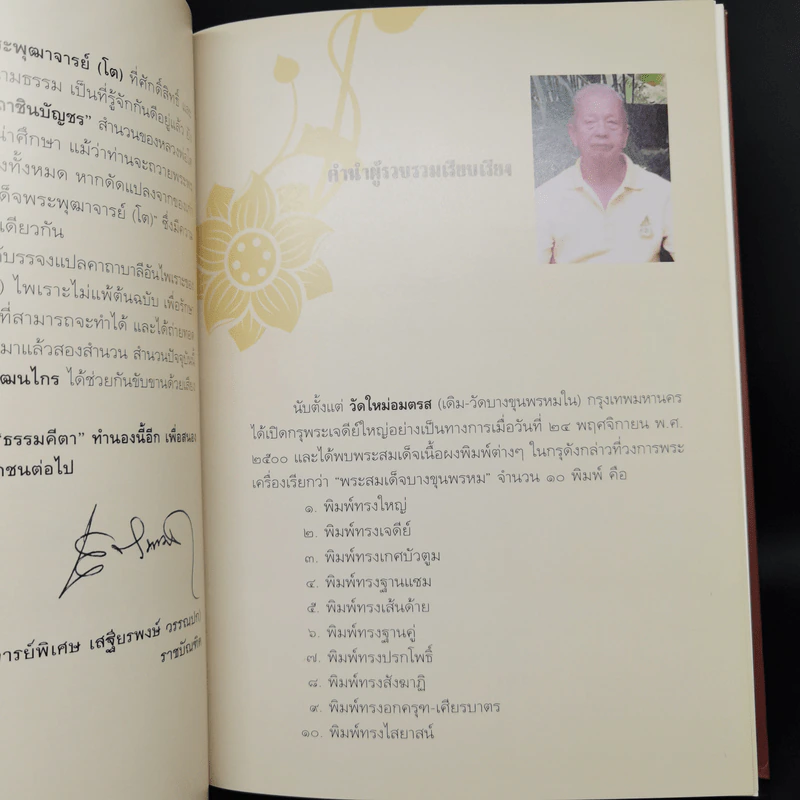 ระพุฒาจารย์ (โต) ที่ศักดิ์สิทธิ์
ามธรรม เป็นที่รู้จักกันดีอยู่แล้ว
าชินบัญชร” สำนวนของหลวงพ่อ
น่าศึกษา แม้ว่าท่านจะถวายพระ
งทั้งหมด หากดัดแปลงจากของ
ด็จพระพุฒาจารย์ (โต)” ซึ่งมีความ
เดียวกัน
้บรรจงแปลคาถาบาลีอันไพเราะของ
) ไพเราะไม่แพ้ต้นฉบับ เพื่อรักษา
ที่สามารถจะทำได้ และได้ถ่ายทอด
มาแล้วสองสำนวน สำนวนปัจจุบันนี้
ฒนไกร ได้ช่วยกันขับขานด้วยเสียง
“ธรรมคีตา” ทำนองนี้อีก เพื่อสนอง
าชนต่อไป
ารย์พิเศษ เสฐียรพงษ์ วรรณปก)
ราชบัณฑิต
คำนำผู้รวบรวมเรียบเรียง
นับตั้งแต่ วัดใหม่อมตรส (เดิม-วัดบางขุนพรหมใน) กรุงเทพมหานคร
ได้เปิดกรุพระเจดีย์ใหญ่อย่างเป็นทางการเมื่อวันที่ ๒๔ พฤศจิกายน พ.ศ.
๒๕๐๐ และได้พบพระสมเด็จเนื้อผงพิมพ์ต่างๆ ในกรุดังกล่าวที่วงการพระ
เครื่องเรียกว่า “พระสมเด็จบางขุนพรหม” จำนวน ๑๐ พิมพ์ คือ
๑. พิมพ์ทรงใหญ่
๒. พิมพ์ทรงเจดีย์
๓. พิมพ์ทรงเกศบัวตูม
๔. พิมพ์ทรงฐานแซม
๕. พิมพ์ทรงเส้นด้าย
๖. พิมพ์ทรงฐานคู่
๗. พิมพ์ทรงปรกโพธิ์
๘. พิมพ์ทรงสังฆาฏิ
๙. พิมพ์ทรงอกครุฑ-เศียรบาตร
๑๐. พิมพ์ทรงไสยาสน์